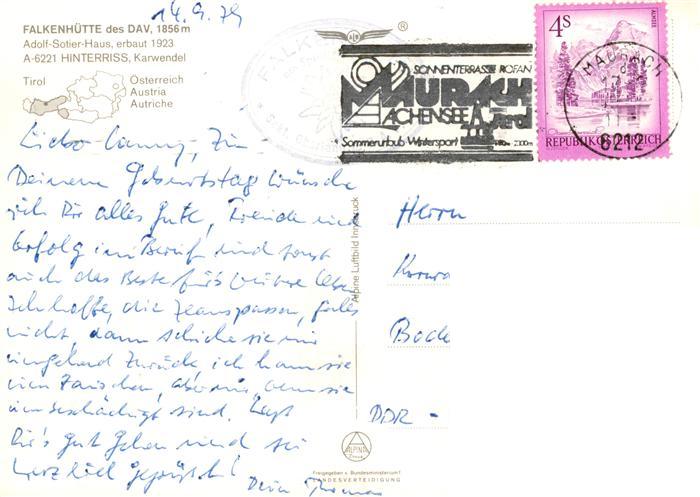 14.9.79
FALKENHÜTTE des DAV, 1856m
Adolf-Sotier-Haus, erbaut 1923
A-6221 HINTERRISS, Karwendel
Tirol
Österreich
Austria
Autriche
®
SONNENTERRASSE ROFAN
MAURACH
ACHENSEE Tirol
Sommerurlaub Wintersport
4S
ALMSEE
REPUBLIK ÖSTERREICH
MAURACH
6212
Deinem Geburtstag wünsche
ich Dir alles Gute, Freude und
Erfolg im Beruf und sonst
auch das Beste für's weitere Leben
Ich hoffe, die Jeans passen, falls
nicht, dann schicke sie mir
umgehend zurück, ich kann sie
umtauschen, aber nur, wenn sie
unbeschädigt sind. Laß
Dir's gut gehen und sei
herzlich gegrüßt!
Dein Thomas
Alpine Luftbild Innsbruck
Herrn
Bode
DDR -
ALPINA
Freigegeben v. Bundesministerium f.
LANDESVERTEIDIGUNG